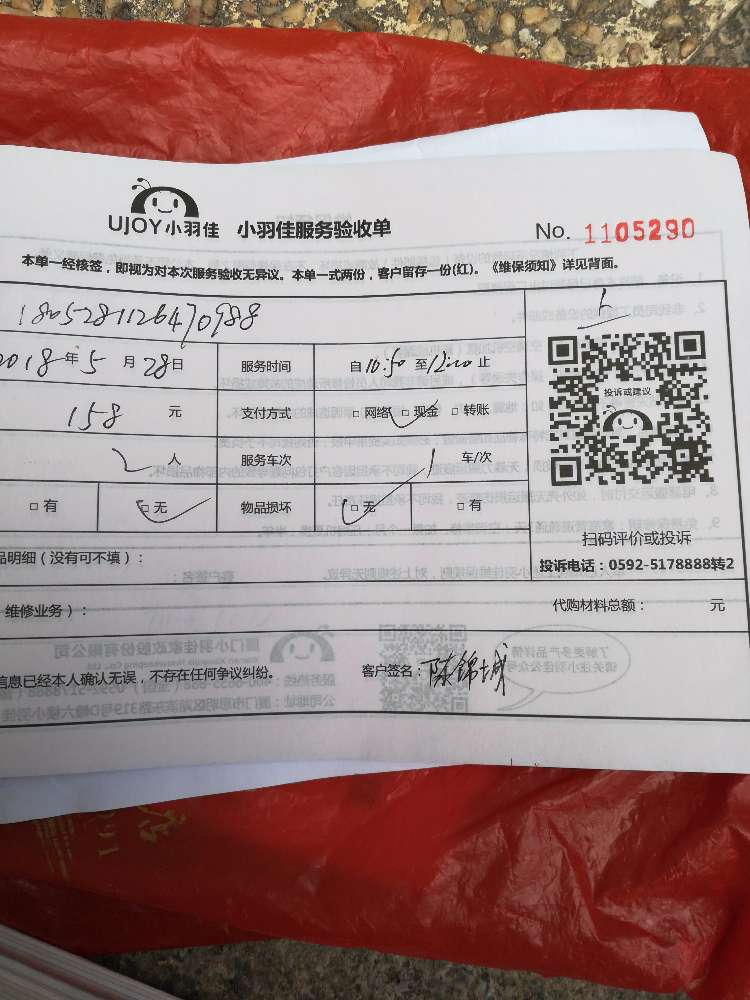 UJOY小羽佳 小羽佳服务验收单 No. 1105290
本单一经核签，即视为对本次服务验收无异议。本单一式两份，客户留存一份(红)。《维保须知》详见背面。
1805281126470988
2018年5月28日 服务时间 自10:50至12:00止
158元 支付方式 □网络 □现金 □转账
投诉或建议
2人 服务车次 1车/次
□有 □无 物品损坏 □无 □有
扫码评价或投诉
品明细（没有可不填）：
投诉电话：0592-5178888转2
维修业务）：
代购材料总额： 元
信息已经本人确认无误，不存在任何争议纠纷。 客户签名：陈锦城